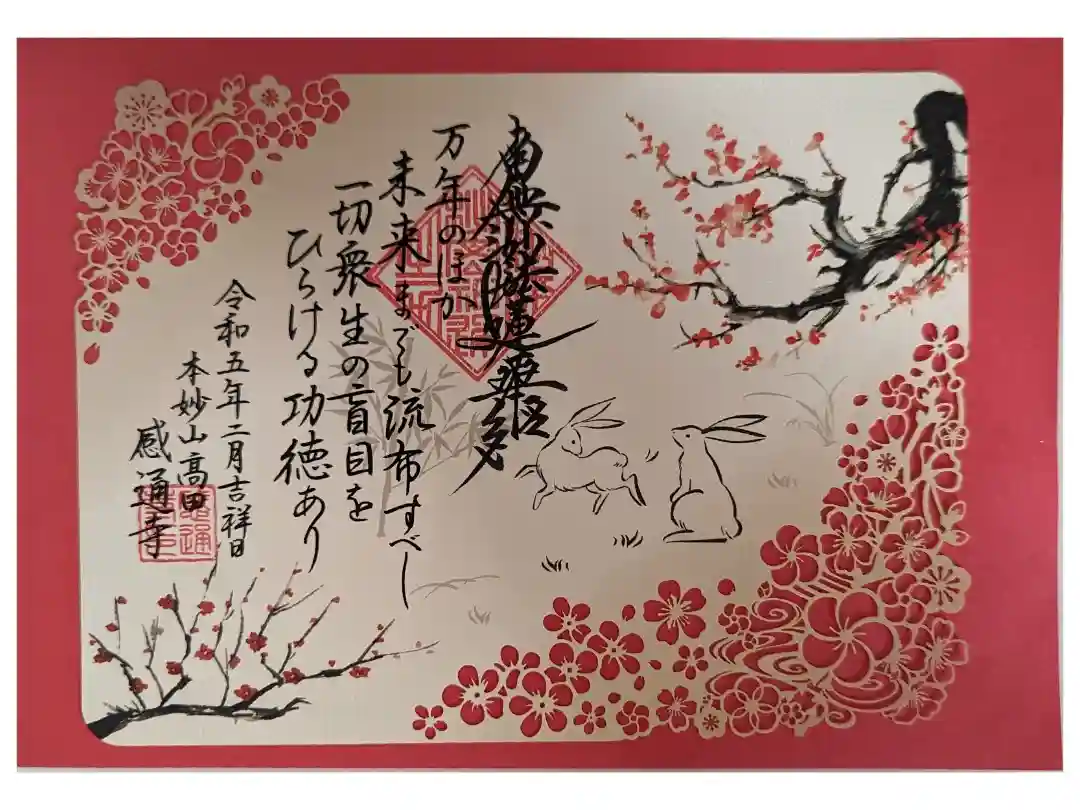 南無妙法蓮華経
万年のほか
未来までも流布すべし
一切衆生の盲目を
ひらける功徳あり
令和五年二月吉祥日
本妙山高田
感通寺